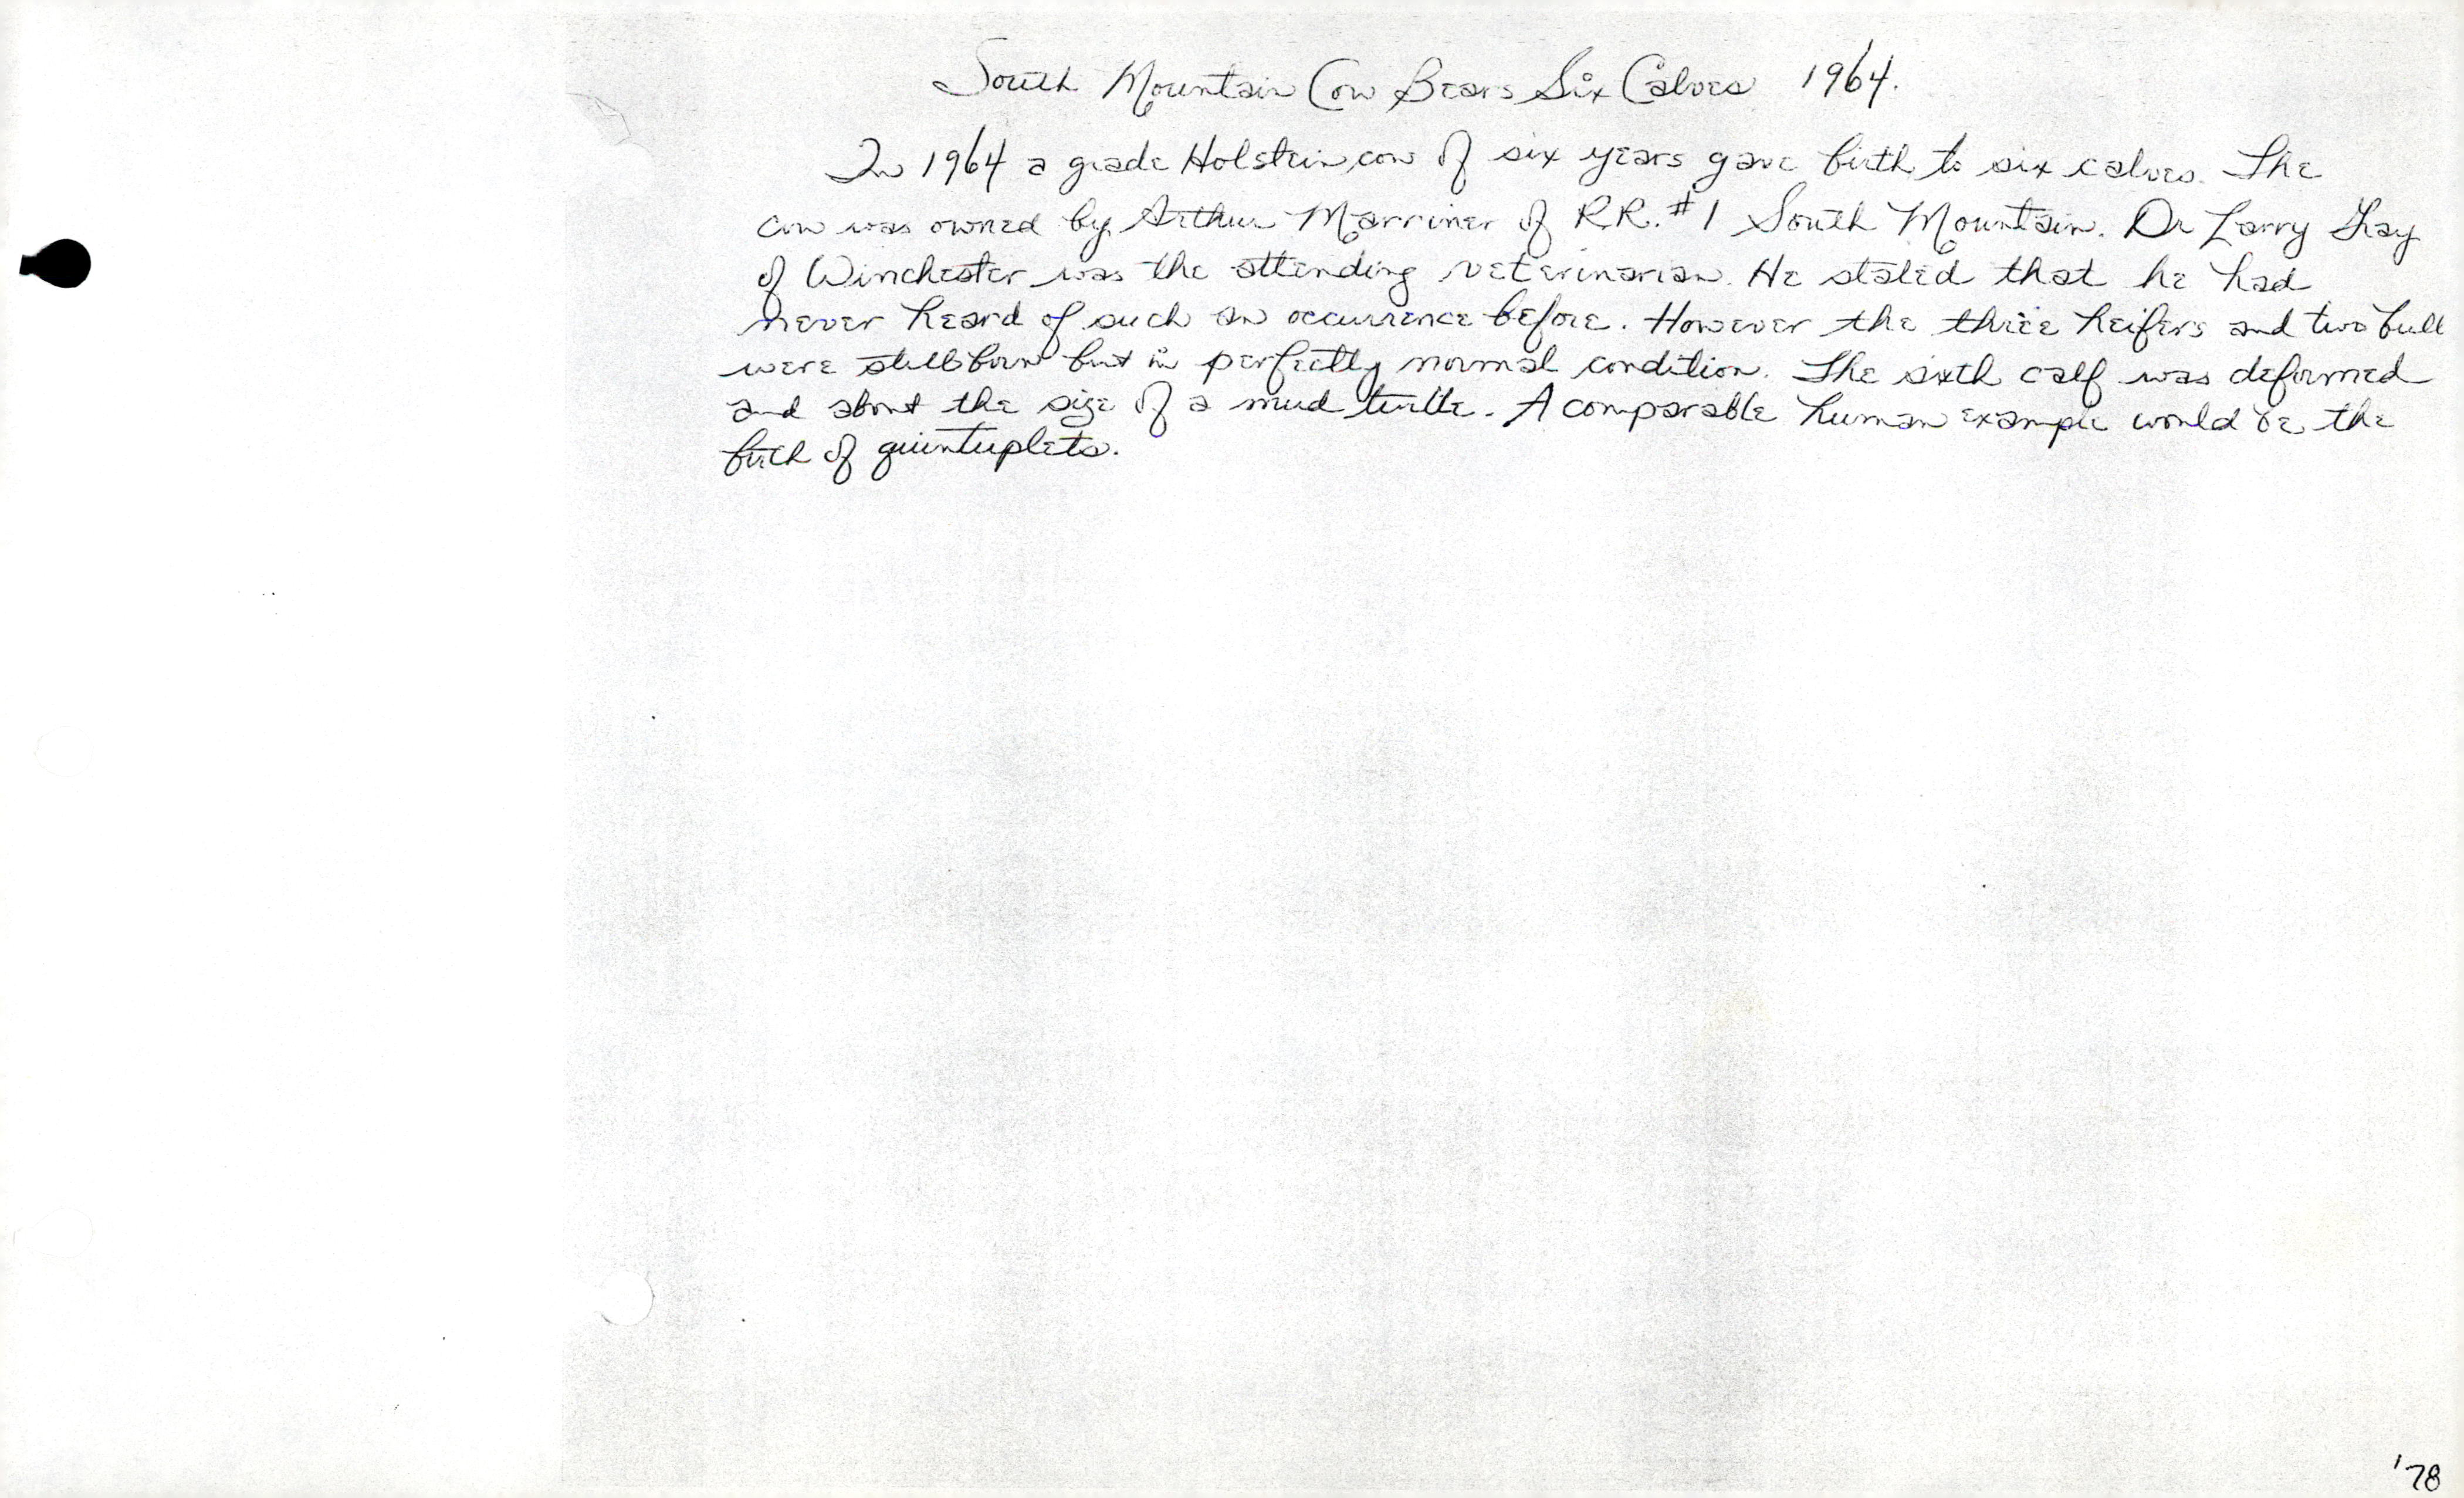 South Mountain Cow Bears Six Calves 1964.
In 1964 a grade Holstein cow of six years gave birth to six calves. The
cow was owned by Arthur Marriner of R.R. #1 South Mountain. Dr Larry
of Winchester was the attending veterinarian. He stated that he had
never heard of such an occurrence before. However the three heifers and two bull
were stillborn but in perfectly normal condition. The sixth calf was deformed
and about the size of a mud turtle. A comparable human example would be the
birth of quintuplets.
'78